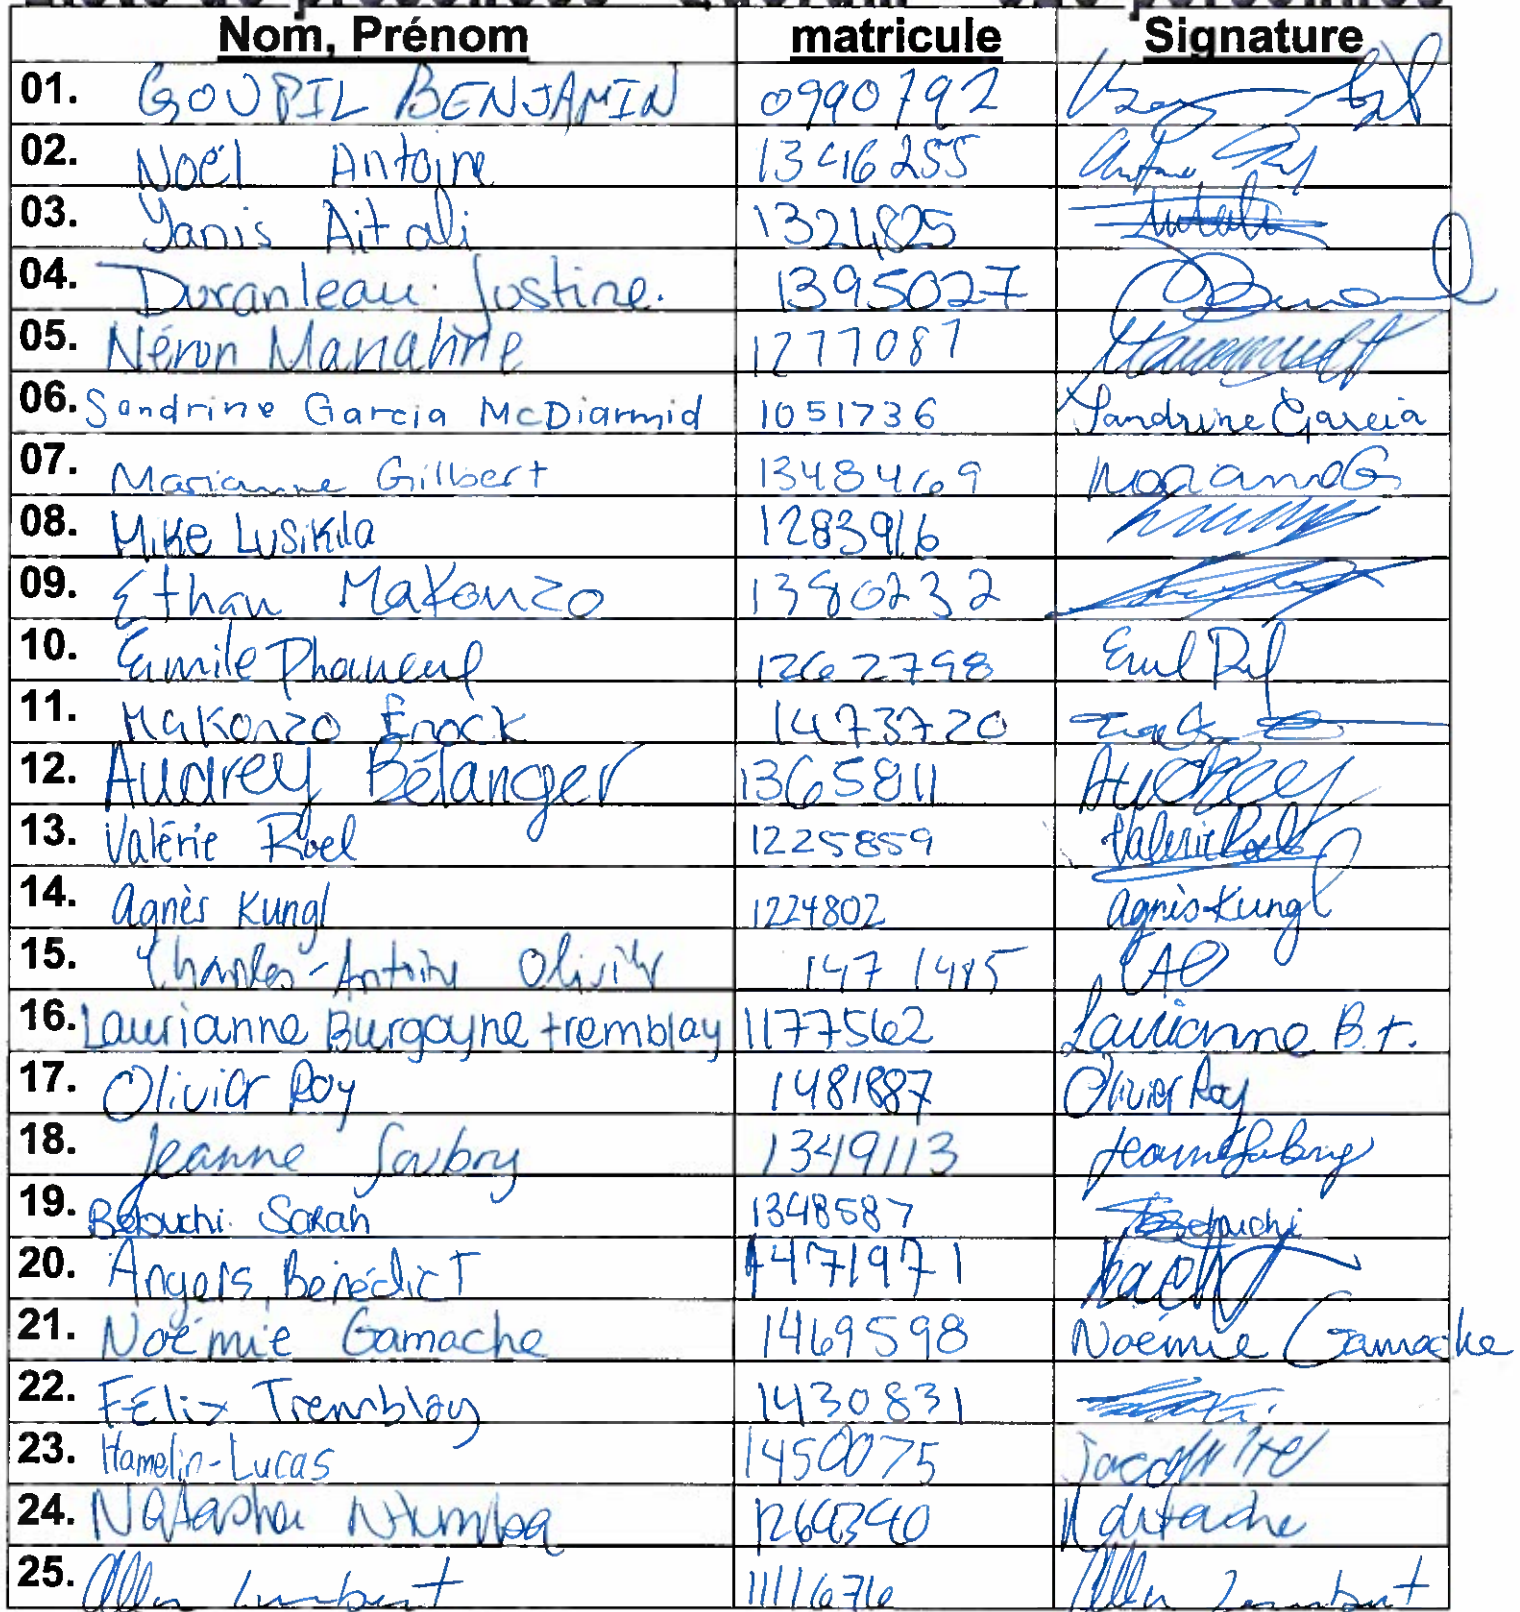 Liste de présences - Quorum -
Nom, Prénom matricule Signature
01. GOUPIL BENJAMIN 0990792
02. Noël Antoine 1346255
03. Yanis Ait ali 1321825
04. Duranleau Justine. 1395027
05. Néron Manahine 1277087
06. Sandrine Garcia McDiarmid 1051736 Sandrine Garcia
07. Marianne Gilbert 1348469
08. Mike Lusikila 1283916
09. Ethan Makonzo 1380232
10. Emile Phaneuf 1262798
11. Makonzo Enock 1473720
12. Audrey Bélanger 1365811 Audrey
13. Valérie Roel 1225859 Valérie Roel
14. Agnès Kungl 1224802 Agnès Kungl
15. Charles-Antoine Olivier 1471485 CAO
16. Laurianne Burgoyne tremblay 1177562 Laurianne B.t.
17. Olivier Roy 1481887 Olivier Roy
18. Jeanne 1349113
19. Belouchi Sarah 1348587 Belouchi
20. Angers, Bénédict 1471971
21. Noémie Gamache 1469598 Noémie Gamache
22. Félix Tremblay 1430831
23. Hamelin-Lucas 1450075
24. Natasha Ntumba 1264340
25. Lambert 1111676 Lambert